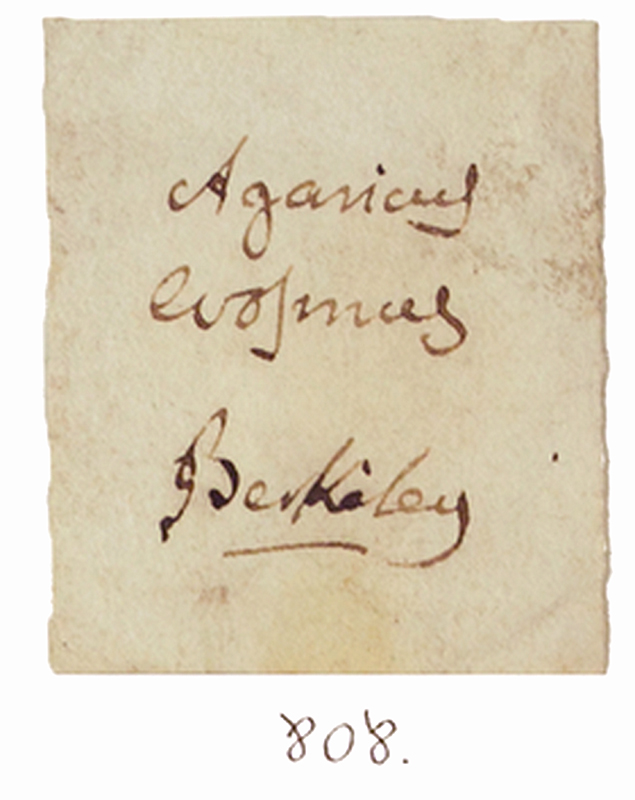 Agaricus
evosmus
Berkeley
808.